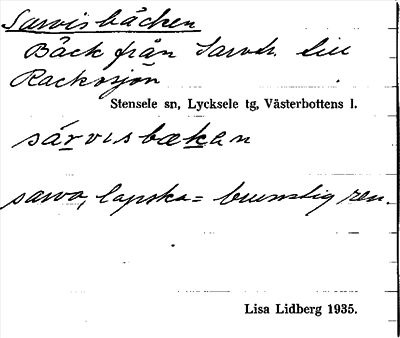 Sarvisbäcken
Bäck från Sarvtr. till
Racksjön
Stensele sn, Lycksele tg, Västerbottens l.
sárvisbækan
sarva, lapska = brunstig ren.
Lisa Lidberg 1935.